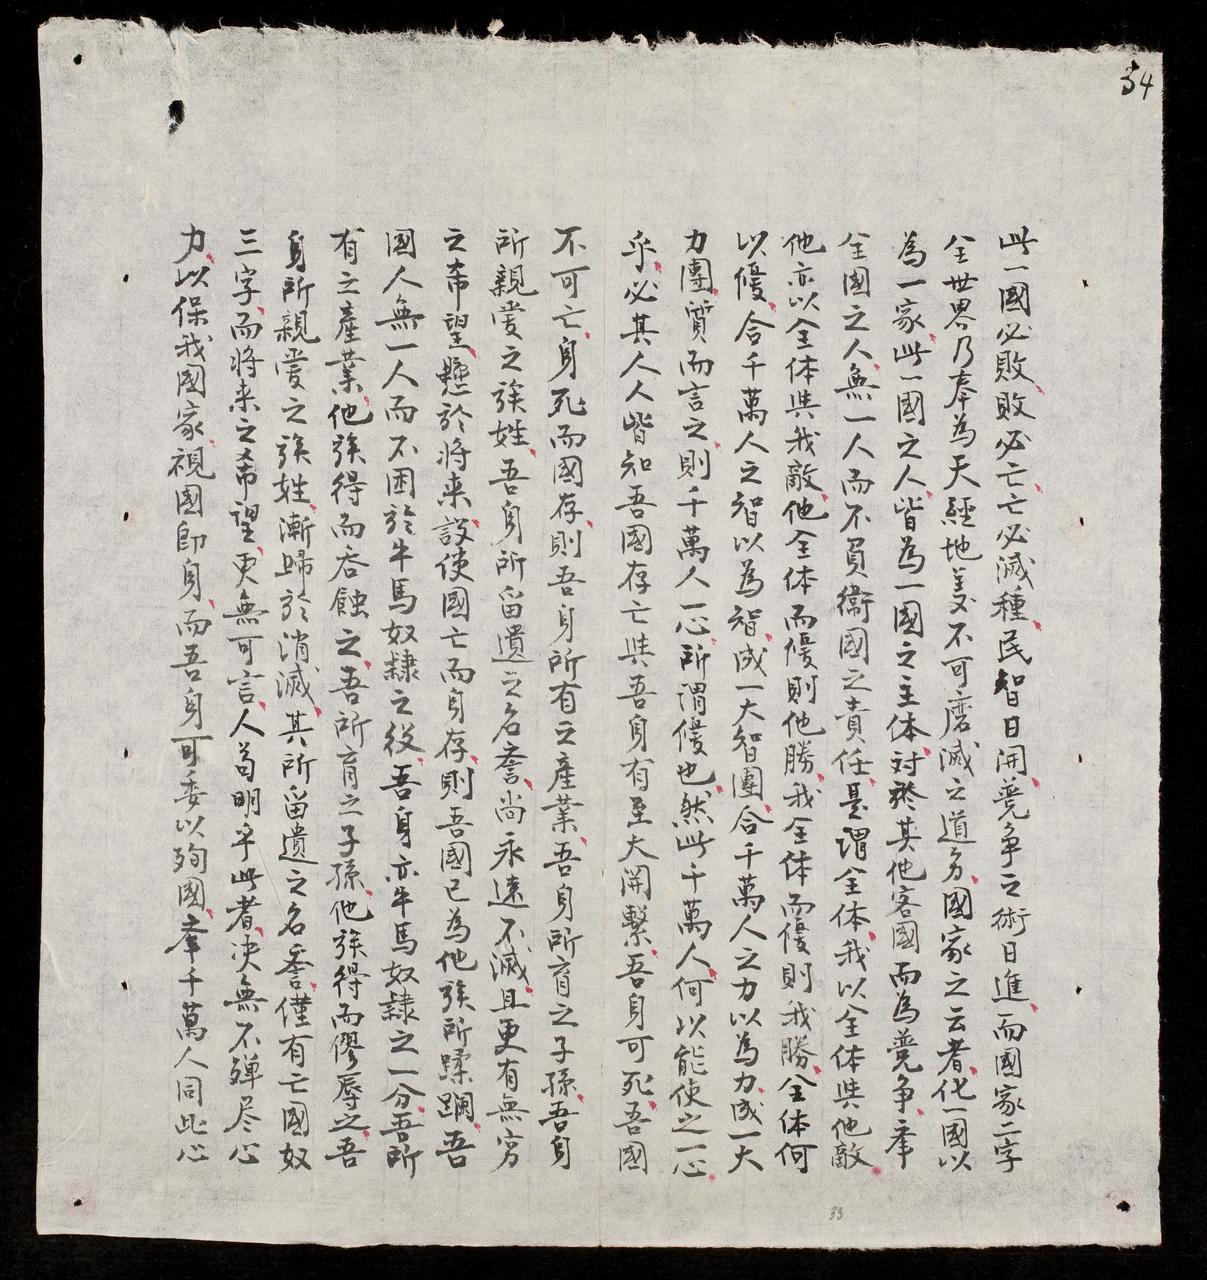 34
此一國必敗、敗必亡、亡必滅種、民智日開、競争之術日進、而國家二字
全世界乃奉為天經地義不可磨滅之道另、國家之云者、化一國以
為一家、此一國之人、皆為一國之主体、対於其他客國而為競争、率
全國之人、無一人而不負衛國之責任、是謂全体、我以全体與他敵、
他亦以全体與我敵、他全体而優則他勝、我全体而優則我勝、全体何
以優、合千萬人之智以為智、成一大智團、合千萬人之力以為力、成一大
力團、質而言之、則千萬人一心、所謂優也、然此千萬人、何以能使之一心
乎、必其人人皆知吾國存亡與吾身有至大関繫、吾身可死、吾國
不可亡、身死而國存、則吾身所有之產業、吾身所育之子孫、吾身
所親愛之族姓、吾身所留遺之名誉、尚永遠不滅、且更有無穷
之希望、懸於將来、設使國亡而身存、則吾國已為他族所蹂躪、吾
國人無一人而不困於牛馬奴隸之役、吾身亦牛馬奴隸之一分、吾所
有之產業、他族得而吞蝕之、吾所育之子孫、他族得而僇辱之、吾
身所親愛之族姓、漸歸於消滅、其所留遺之名誉、僅有亡國奴
三字、而将来之希望、更無可言、人苟明乎此者、决無不殫尽心
力、以保我國家、視國即身、而吾身可委以殉國、率千萬人同此心
33